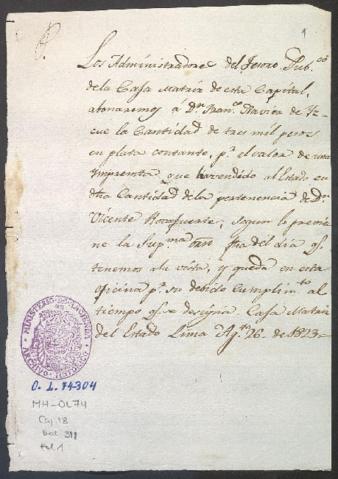 1
Los Administradores del Tesoro Pub.co
de la Casa Matriz de esta Capital,
abonaremos a Dn. Fran.co Xavier de
cue la Cantidad de tres mil pesos
en plata contante, p.r el valor de una
Imprenta que ha vendido al Estado en
dha Cantidad de la pertenencia de Dn.
Vicente Rocafuerte, segun lo previe
ne la Sup.ma orn. fha del dia qe.
tenemos a la vista, y queda en esta
oficina p.a su debido Cumplim.to al
tiempo qe. se designa. Casa Matriz
del Estado Lima Ag.to 26. de 1823=
MINISTERIO DE HACIENDA
ARCHIVO HISTORICO
O. L. 74-304
MH-OL74
Caj. 18
Doc. 311
Fol. 1